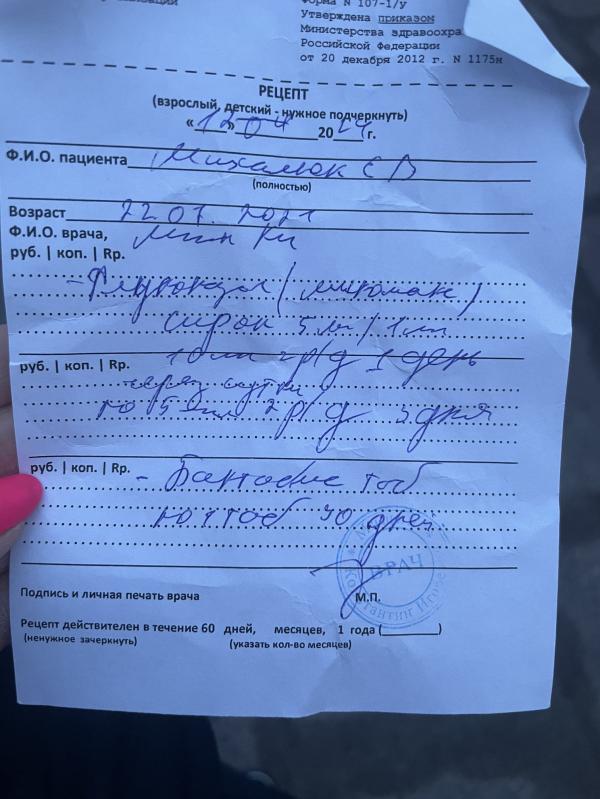 Форма N 107-1/у
Утверждена приказом
Министерства здравоохра
Российской Федерации
от 20 декабря 2012 г. N 1175н
РЕЦЕПТ
(взрослый, детский - нужное подчеркнуть)
«12» 04 2024 г.
Ф.И.О. пациента Михалюк Е В
(полностью)
Возраст 22.07.2021
Ф.И.О. врача,
руб. | коп. | Rp.
сироп 5 мг / 1 мл
руб. | коп. | Rp. 10 мл 2р/д 1 день
по 5 мл 2р/д 3 дня
руб. | коп. | Rp.
по 1 таб дней
ВРАЧ
Подпись и личная печать врача М.П.
Рецепт действителен в течение 60 дней, месяцев, 1 года (________)
(ненужное зачеркнуть) (указать кол-во месяцев)